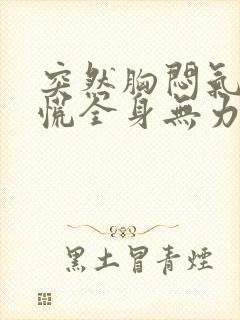 突然胸悶氣
慌全身無力
黑土冒青煙